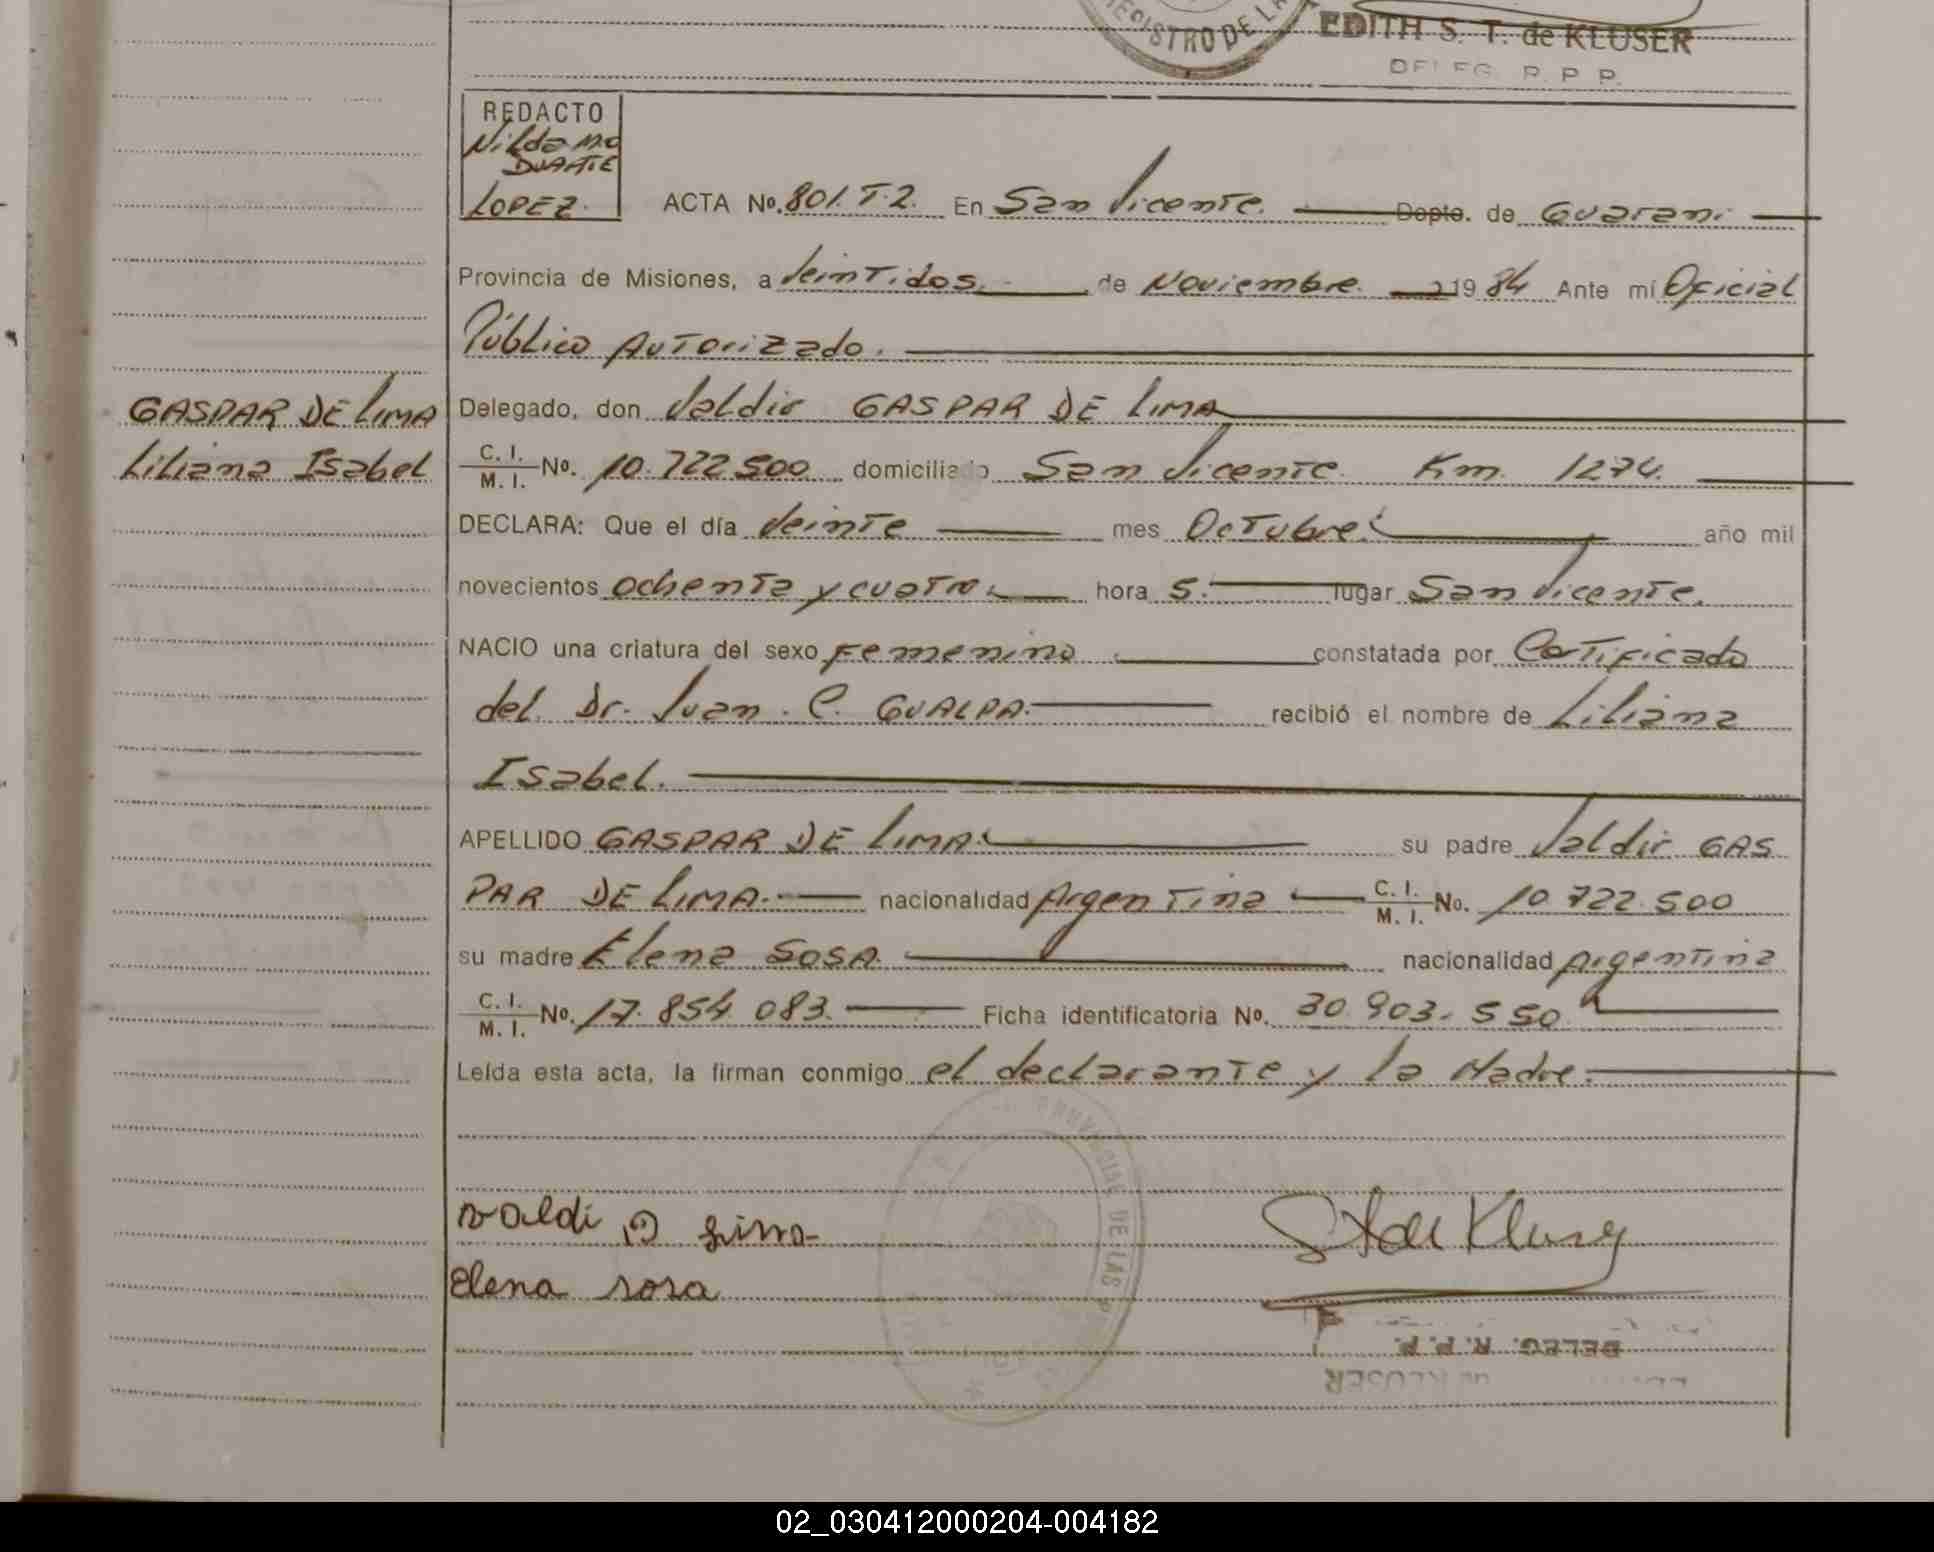 REGISTRO DE LA
EDITH S. T. de KLUSER
DELEG. R. P. P.
REDACTO
Nilda
DUARTE
LOPEZ.
ACTA No. 801. T. 2. En San Vicente. Depto. de Guarani
Provincia de Misiones, a Veintidos. de Noviembre. 19 84 Ante mí Oficial
Público Autorizado.
GASPAR DE LIMA
Liliana Isabel
Delegado, don Valdir GASPAR DE LIMA
C. I. M. I. No. 10.722.500 domiciliado San Vicente. Km. 1274.
DECLARA: Que el día Veinte mes Octubre. año mil
novecientos ochenta y cuatro. hora 5. lugar San Vicente.
NACIO una criatura del sexo Femenino constatada por Certificado
del Dr. Juan. C. GUALPA. recibió el nombre de Liliana
Isabel.
APELLIDO GASPAR DE LIMA. su padre Valdir GAS
PAR DE LIMA. nacionalidad Argentina C. I. M. I. No. 10 722.500
su madre Elena SOSA nacionalidad Argentina
C. I. M. I. No. 17.854.083. Ficha identificatoria No. 30.903.550
Leída esta acta, la firman conmigo el declarante y la Madre.
valdi g lima
Elena sosa
DELEG. R. P. P.
de KLUSER
02_030412000204-004182